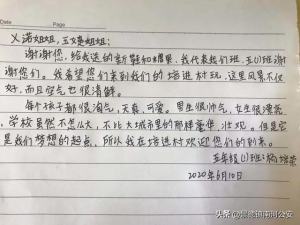 Date / Page
义诺姐姐,王X姐姐:
谢谢您,给我送的新鞋和糖果,我代表们班五(1)班谢
谢你们。我希望您们来到我们的培进村玩,这里风景不仅
好,而且空气也很清鲜。
每个孩子都很淘气,天真,可爱。男生很帅气,女生很漂亮,
学校虽然不怎么大,不比大城市里的那样豪华,壮观。但是它
是我们梦想的起点,所以我在培进村欢迎您们的到来。
五年级(1)班:杨
2020年6月10日
头条 @景德镇南河公安